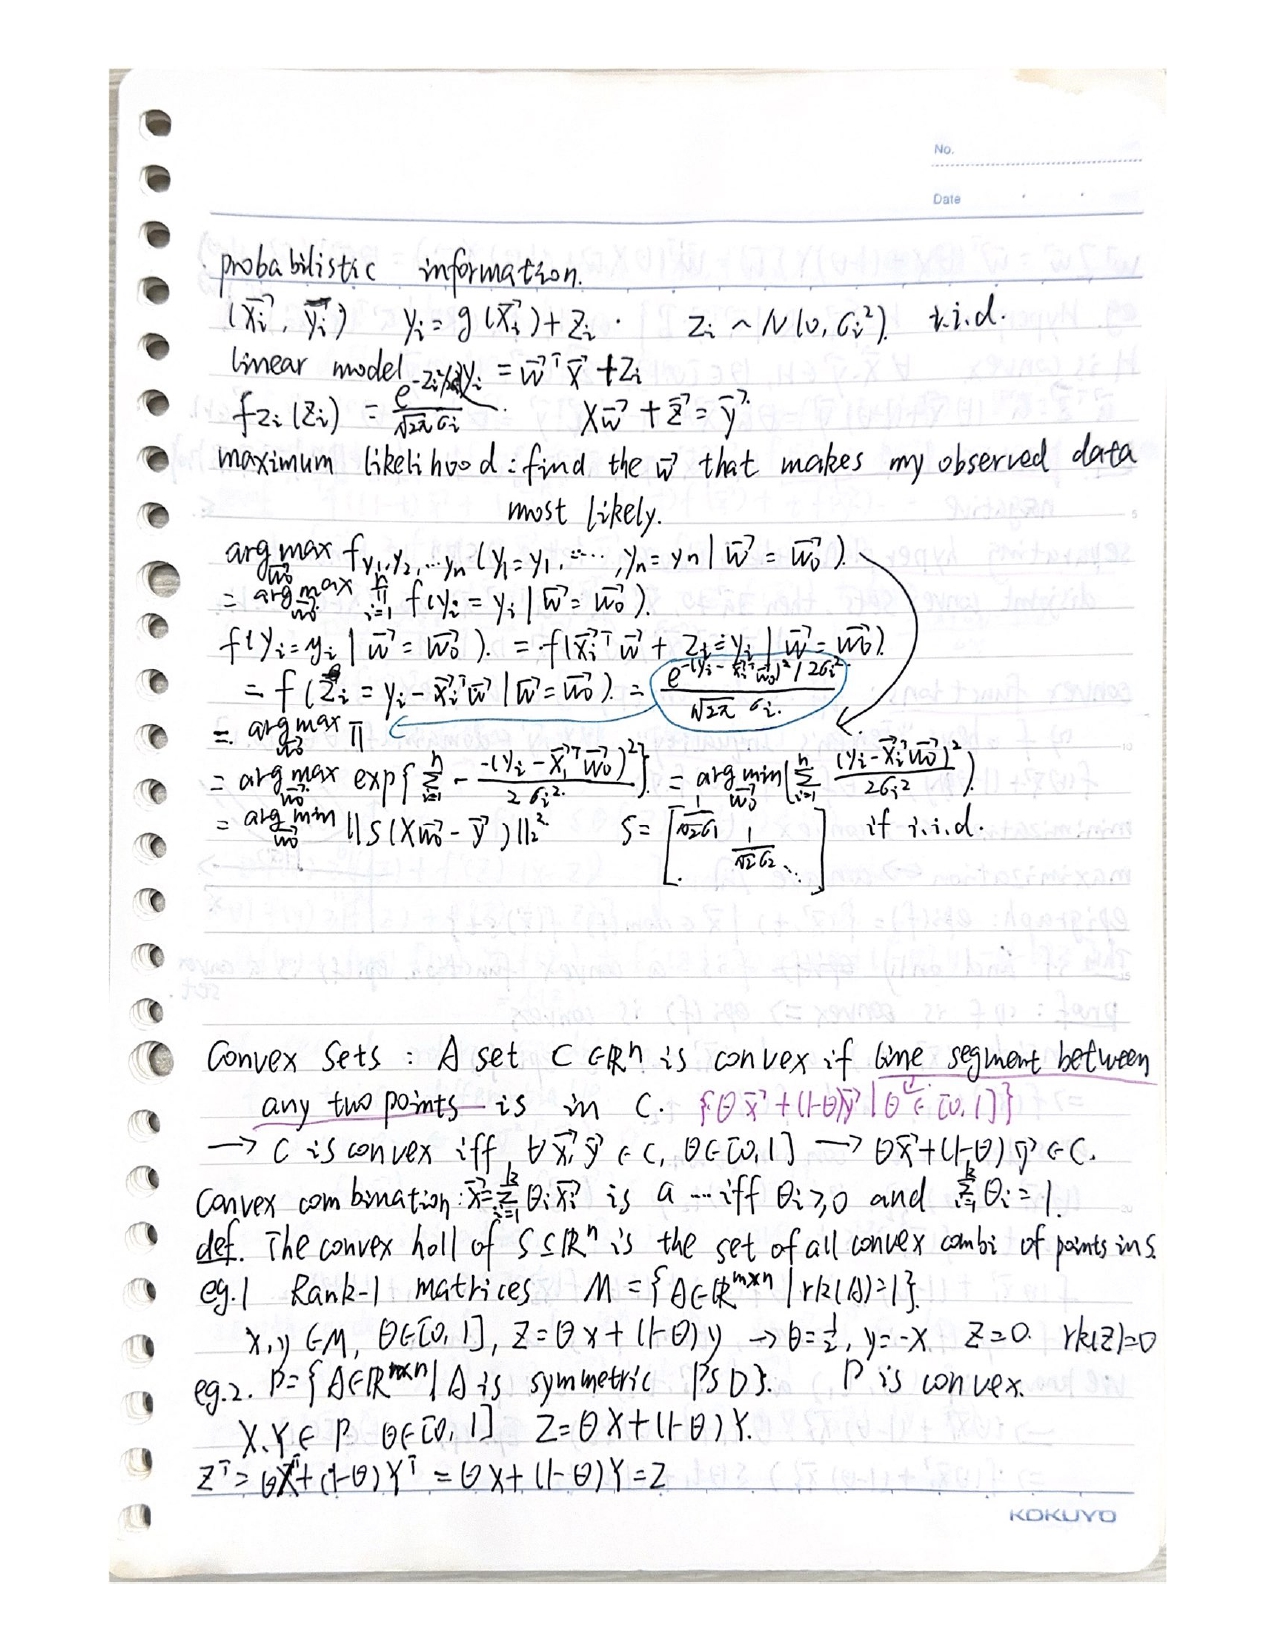 No.
Date
probabilistic information.
(x⃗i, y⃗i) yi = g(x⃗i) + Zi. Zi ~ N(0, σi²) i.i.d.
linear model yi = w⃗ᵀx⃗ + Zi
fZi(Zi) = e^-Zi²/ / √2π σi. Xw⃗ + z⃗ = y⃗.
maximum likelihood : find the w⃗ that makes my observed data
most likely.
argmax w⃗0 fy1,y2,...yn (y1=y1, ..., yn=yn | w⃗ = w⃗0).
= argmax w⃗0 Π i=1 n f(yi = yi | w⃗ = w⃗0).
f(yi=yi | w⃗ = w⃗0). = f(x⃗iᵀw⃗ + Zi = yi | w⃗ = w⃗0)
= f(Zi = yi - x⃗iᵀw⃗ | w⃗ = w⃗0). = e^-(yi - x⃗iᵀw⃗0)²/2σi² / √2π σi.
= argmax w⃗0 Π
= argmax w⃗0 exp{Σ i=1 n - -(yi - x⃗iᵀw⃗0)² / 2σi²} = argmin w⃗0 (Σ i=1 n (yi - x⃗iᵀw⃗0)² / 2σi²)
= argmin w⃗0 ||S(Xw⃗0 - y⃗)||₂² S = [1/√2σ1 1/√2σ2 ⋱] if i.i.d.
Convex Sets : A set C ∈ ℝⁿ is convex if line segment between
any two points is in C. {θx⃗ + (1-θ)y⃗ | θ ∈ [0,1]}
→ C is convex iff ∀x⃗,y⃗ ∈ C, θ∈[0,1] → θx⃗ + (1-θ)y⃗ ∈ C.
Convex combination : x⃗ = Σ i=1 k θi x⃗i is a ... iff θi ≥ 0 and Σ i=1 k θi = 1.
def. The convex holl of S ⊆ ℝⁿ is the set of all convex combi of points in S
eg.1 Rank-1 matrices M = {A∈ℝ^m×n | rk(A)=1}.
x,y ∈ M, θ∈[0,1], Z = θx + (1-θ)y → θ=½, y=-x Z=0. rk(Z)=0
eg.2. P = {A∈ℝ^n×n | A is symmetric PSD}. P is convex.
X.Y ∈ P θ∈[0,1] Z = θX + (1-θ)Y.
Zᵀ = θXᵀ + (1-θ)Yᵀ = θX + (1-θ)Y = Z
KOKUYO